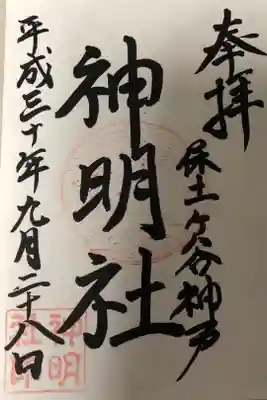 奉拝
保土ヶ谷神戸
神明社
平成三十年九月二十八日
神明社印